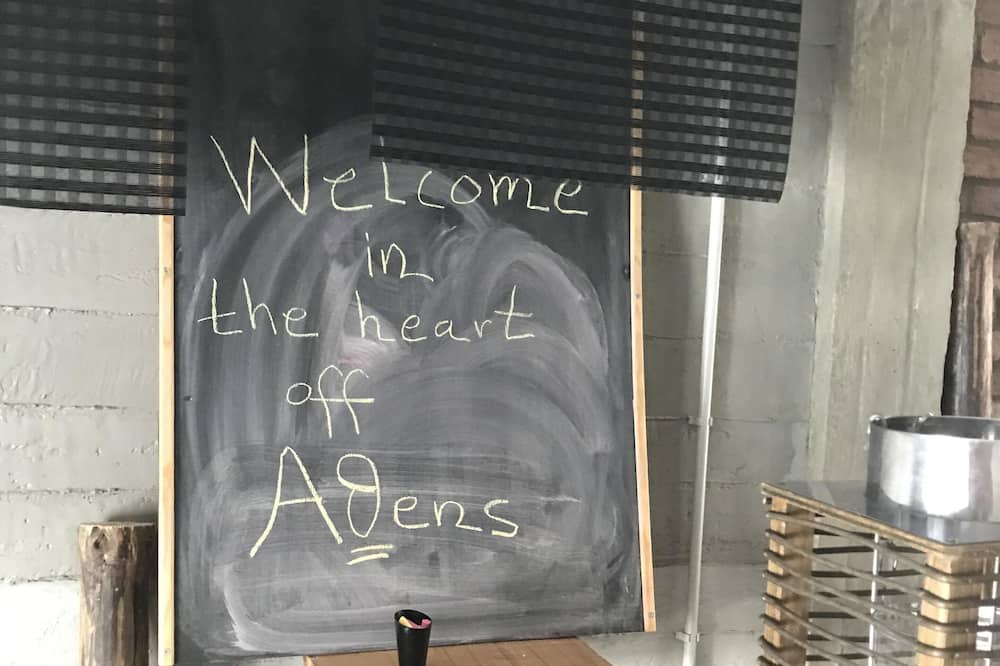 Welcome
in
the heart
off
Aϑens